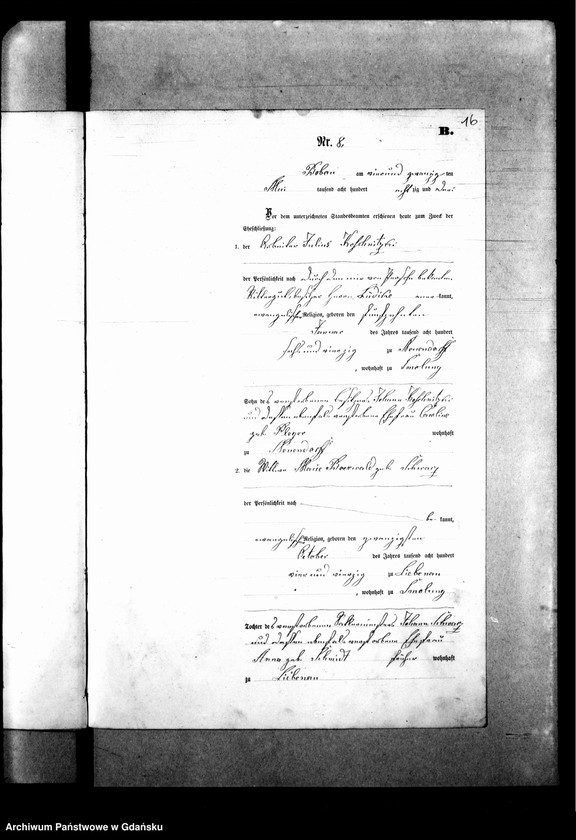 16
B.
Nr. 8
Boban am vier und zwanzig ten
Mai tausend acht hundert acht zig und drei
Vor dem unterzeichneten Standesbeamten erschienen heute zum Zweck der
Eheschließung:
1. der Arbeiter Julius
der Persönlichkeit nach durch den von Person bekannten
Rittergutsbesitzer Herrn kannt,
evangelischer Religion, geboren den fünfzehnten
Januar des Jahres tausend acht hundert
sechs und vierzig zu Neuendorf
, wohnhaft zu Smolong
Sohn des verstorbenen Johann
und dessen ebenfalls verstorbene Ehefrau
geb. wohnhaft
zu Neuendorf
2. die Wittwe Marie geb. Schwarz
der Persönlichkeit nach
be kannt,
evangelischer Religion, geboren den zwanzigsten
October des Jahres tausend acht hundert
vier und vierzig zu Liebenau
, wohnhaft zu Smolong
Tochter des verstorbenen Sattlermeisters Johann Schwarz
und dessen ebenfalls verstorbene Ehefrau
Anna geb. Schmidt früher wohnhaft
zu Liebenau
Archiwum Państwowe w Gdańsku